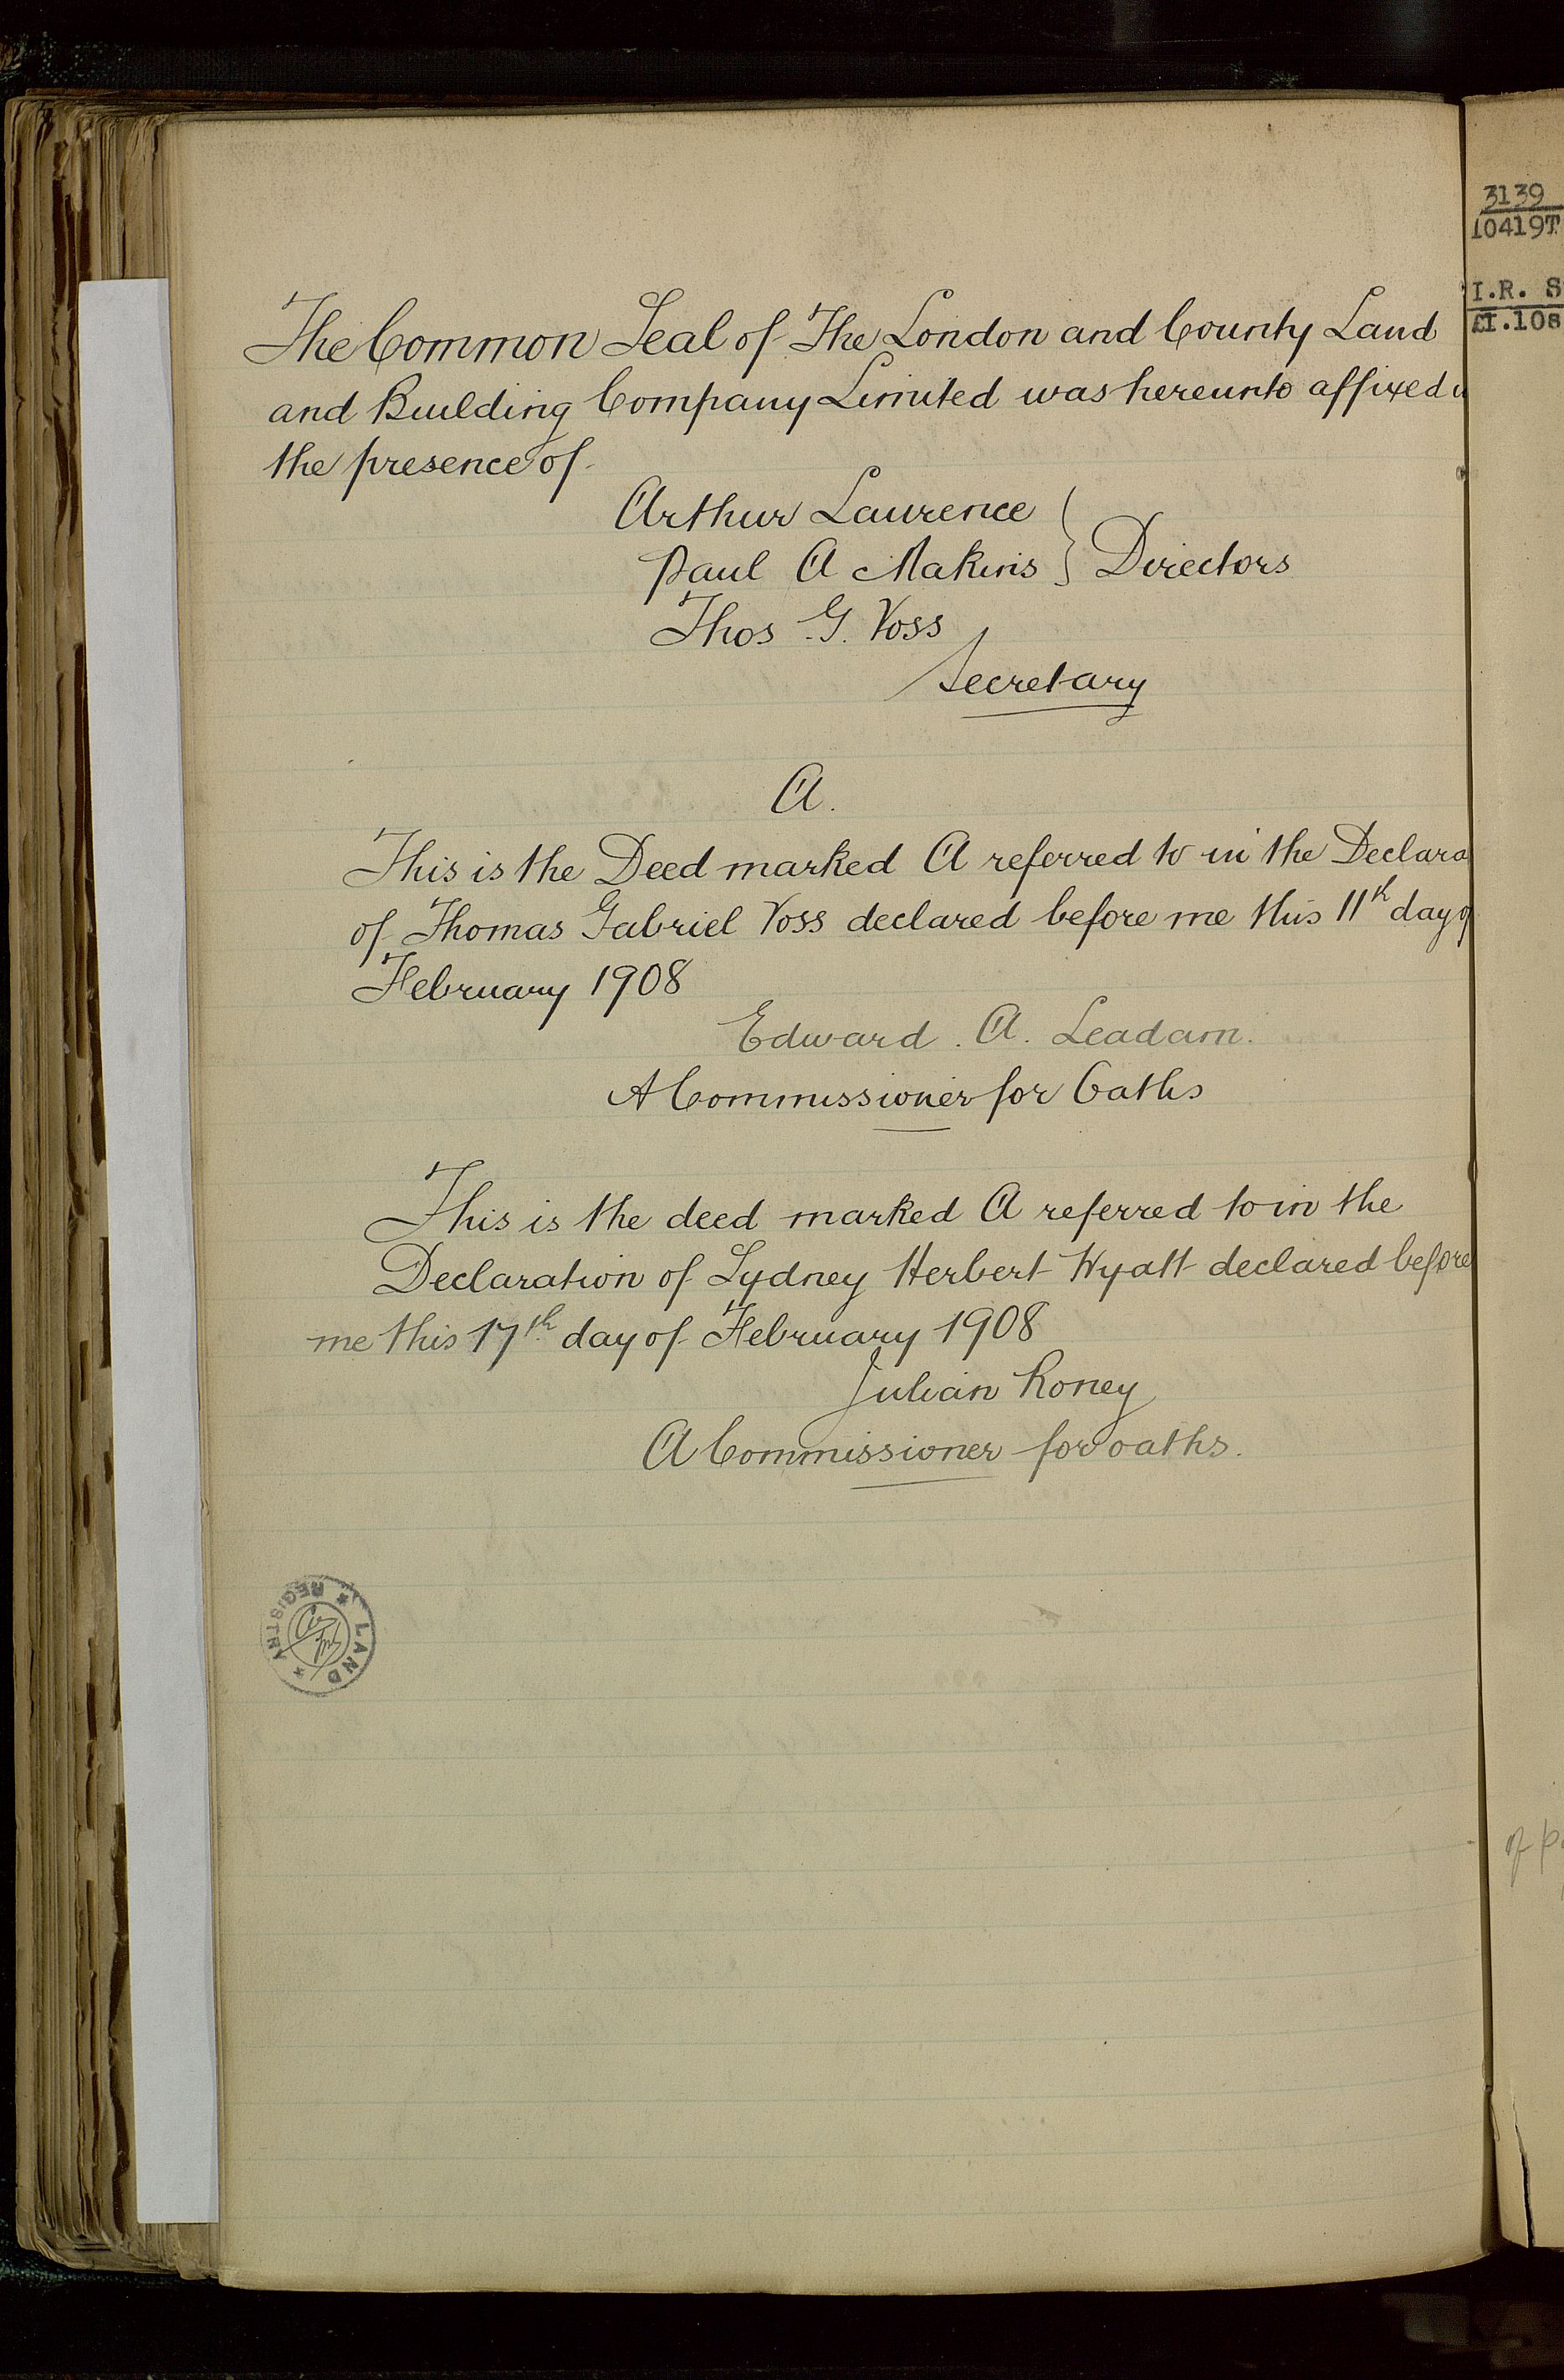 The Common Seal of The London and County Land
and Building Company Limited was hereunto affixed
the presence of
Arthur Laurence
Paul A Makins } Directors
Thos. G. Voss
Secretary
A.
This is the Deed marked A referred to in the Declara
of Thomas Gabriel Voss declared before me this 11th day of
February 1908
Edward. A. Leadam.
A Commissioner for Oaths
This is the deed marked A referred to in the
Declaration of Sydney Herbert Wyatt declared before
me this 17th day of February 1908
Julian Roney
A Commissioner for oaths.
* LAND * REGISTRY
3139
10419T
I.R. S
£1.10s
of p